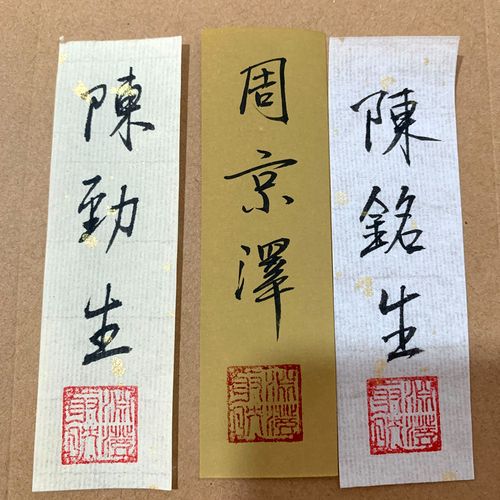 陳勁生
周京澤
陳銘生